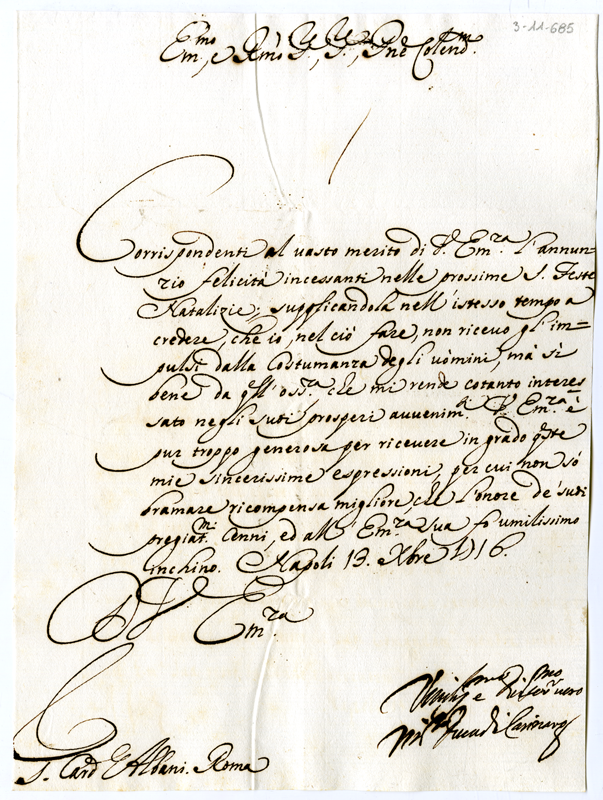 3-11-685
Em.mo, e Rmo S.r, S.r, Pne Colend.mo
Corrispondenti al uasto merito di V. Em.ra l'annun=
zio felicità incessanti nelle prossime S. Feste
Natalizie, supplicandola nell'istesso tempo a
credere, che io, nel ciò fare, non riceuo gl'im=
pulsi dalla Costumanza degli uòmini, mà sì
bene da qll'oss.za che mi rende cotanto interes
sato negli suoi prosperi auuenim.ti. V. Em.ra è
pur troppo generosa per riceuere in grado q.ste
mie sincerissime espressioni, per cui non sò
bramare ricompensa migliore, che l'onore de' suoi
pregiat.mi Cenni, ed all'Em.ra Sua fò umilissimo
inchino. Napoli 13. Xbre 1716.
D V Em.ra
S. Card. Albani. Roma